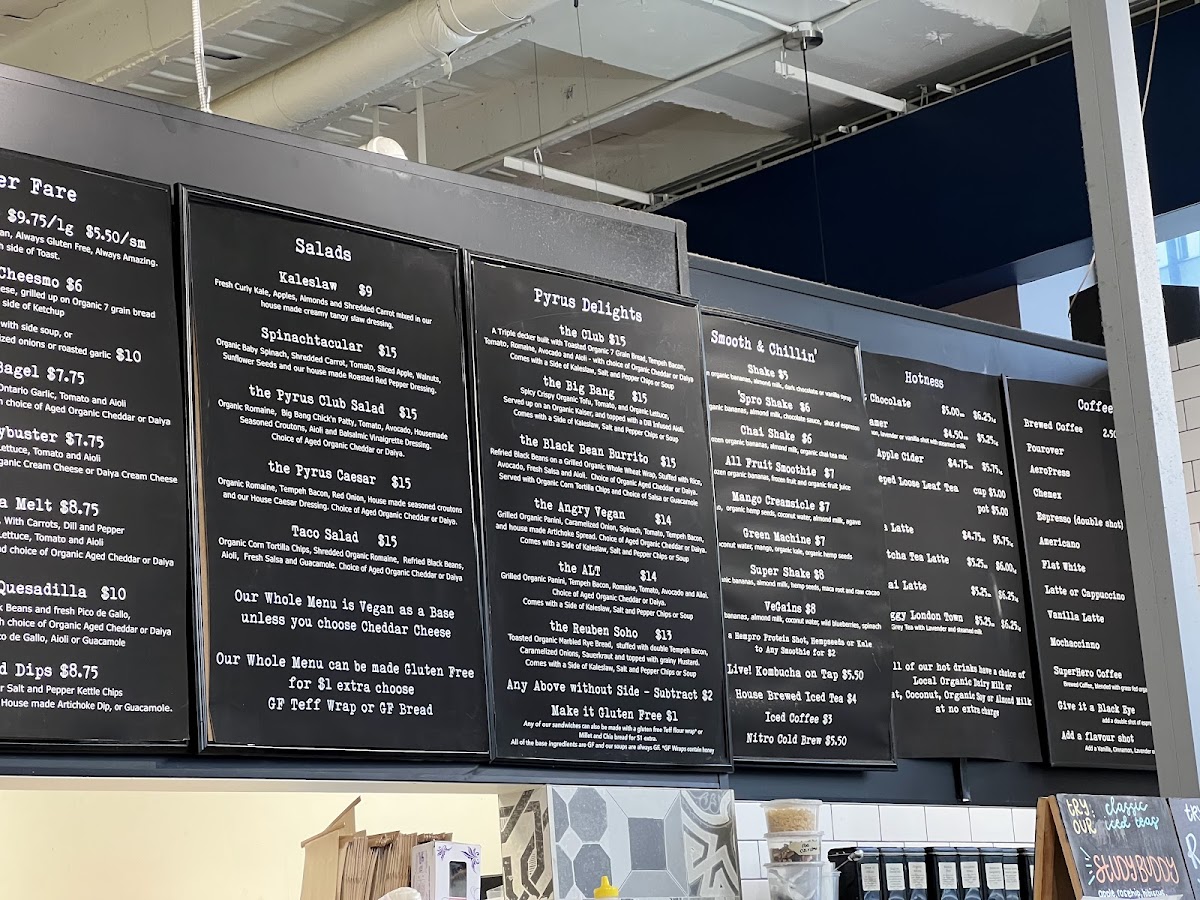 er Fare
$9.75/lg $5.50/sm
an, Always Gluten Free, Always Amazing.
side of Toast.
Cheesmo $6
ese, grilled up on Organic 7 grain bread
side of Ketchup
with side soup, or
ized onions or roasted garlic $10
Bagel $7.75
Ontario Garlic, Tomato and Aioli
choice of Aged Organic Cheddar or Daiya
ybuster $7.75
Lettuce, Tomato and Aioli
ganic Cream Cheese or Daiya Cream Cheese
a Melt $8.75
With Carrots, Dill and Pepper
Lettuce, Tomato and Aioli
d choice of Aged Organic Cheddar or Daiya
Quesadilla $10
k Beans and fresh Pico de Gallo,
h choice of Organic Aged Cheddar or Daiya
co de Gallo, Aioli or Guacamole
d Dips $8.75
r Salt and Pepper Kettle Chips
House made Artichoke Dip, or Guacamole.
Salads
Kaleslaw $9
Fresh Curly Kale, Apples, Almonds and Shredded Carrot mixed in our
house made creamy tangy slaw dressing.
Spinachtacular $15
Organic Baby Spinach, Shredded Carrot, Tomato, Sliced Apple, Walnuts,
Sunflower Seeds and our house made Roasted Red Pepper Dressing.
the Pyrus Club Salad $15
Organic Romaine, Big Bang Chick'n Patty, Tomato, Avocado, Housemade
Seasoned Croutons, Aioli and Balsalmic Vinaigrette Dressing.
Choice of Aged Organic Cheddar or Daiya.
the Pyrus Caesar $15
Organic Romaine, Tempeh Bacon, Red Onion, House made seasoned croutons
and our House Caesar Dressing. Choice of Aged Organic Cheddar or Daiya.
Taco Salad $15
Organic Corn Tortilla Chips, Shredded Organic Romaine, Refried Black Beans,
Aioli, Fresh Salsa and Guacamole. Choice of Aged Organic Cheddar or Daiya
Our Whole Menu is Vegan as a Base
unless you choose Cheddar Cheese
Our Whole Menu can be made Gluten Free
for $1 extra choose
GF Teff Wrap or GF Bread
Pyrus Delights
the Club $15
A Triple decker built with Toasted Organic 7 Grain Bread, Tempeh Bacon,
Tomato, Romaine, Avocado and Aioli - with choice of Organic Cheddar or Daiya
Comes with a Side of Kaleslaw, Salt and Pepper Chips or Soup
the Big Bang $15
Spicy Crispy Organic Tofu, Tomato, and Organic Lettuce,
Served up on an Organic Kaiser, and topped with a Dill Infused Aioli.
Comes with a Side of Kaleslaw, Salt and Pepper Chips or Soup
the Black Bean Burrito $15
Refried Black Beans on a Grilled Organic Whole Wheat Wrap, Stuffed with Rice,
Avocado, Fresh Salsa and Aioli. Choice of Organic Aged Cheddar or Daiya.
Served with Organic Corn Tortilla Chips and Choice of Salsa or Guacamole
the Angry Vegan $14
Grilled Organic Panini, Caramelized Onion, Spinach, Tomato, Tempeh Bacon,
and house made Artichoke Spread. Choice of Aged Organic Cheddar or Daiya.
Comes with a Side of Kaleslaw, Salt and Pepper Chips or Soup
the ALT $14
Grilled Organic Panini, Tempeh Bacon, Romaine, Tomato, Avocado and Aioi.
Choice of Aged Organic Cheddar or Daiya.
Comes with a Side of Kaleslaw, Salt and Pepper Chips or Soup
the Reuben Soho $13
Toasted Organic Marbled Rye Bread, stuffed with double Tempeh Bacon,
Caramelized Onions, Sauerkraut and topped with grainy Mustard.
Comes with a Side of Kaleslaw, Salt and Pepper Chips or Soup
Any Above without Side - Subtract $2
Make it Gluten Free $1
Any of our sandwiches can also be made with a gluten free Teff flour wrap* or
Millet and Chia bread for $1 extra.
All of the base ingredients are GF and our soups are always GF. *GF Wraps contain honey
Smooth & Chillin'
Shake $5
organic bananas, almond milk, dark chocolate or vanilla syrup
'Spro Shake $6
ganic bananas, almond milk, chocolate sauce, shot of espresso
Chai Shake $6
ozen organic bananas, almond milk, organic chai tea mix
All Fruit Smoothie $7
ozen organic bananas, frozen fruit and organic fruit juice
Mango Creamsicle $7
organic hemp seeds, coconut water, almond milk, agave
Green Machine $7
onut water, mango, organic kale, organic hemp seeds
Super Shake $8
nic bananas, almond milk, hemp seeds, maca root and raw cacao
VeGains $8
bananas, almond milk, coconut water, wild blueberries, spinach
a Hempro Protein Shot, Hempseeds or Kale
to Any Smoothie for $2
Live! Kombucha on Tap $5.50
House Brewed Iced Tea $4
Iced Coffee $3
Nitro Cold Brew $5.50
Hotness
Chocolate $5.00 $6.25
amer $4.50 $5.25
lavender or vanilla shot with steamed milk
Apple Cider $4.75 $5.75
eped Loose Leaf Tea cup $1.00
pot $5.00
a Latte $4.75 $5.75
tcha Tea Latte $5.25 $6.00
ai Latte $5.25 $6.25
ggy London Town $5.25 $6.25
Grey Tea with Lavender and steamed milk
ll of our hot drinks have a choice of
Local Organic Dairy Milk or
at, Coconut, Organic Soy or Almond Milk
at no extra charge
Coffee
Brewed Coffee 2.50
Pourover
AeroPress
Chemex
Espresso (double shot)
Americano
Flat White
Latte or Cappuccino
Vanilla Latte
Mochaccinno
SuperHero Coffee
Brewed Coffee, blended with grass fed orga
Give it a Black Eye
add a double shot of esp
Add a flavour shot
Add a Vanilla, Cinnamon, Lavender
TRY OUR
classic
iced teas
STUDY BUDDY
apple, rosehip, hibiscus